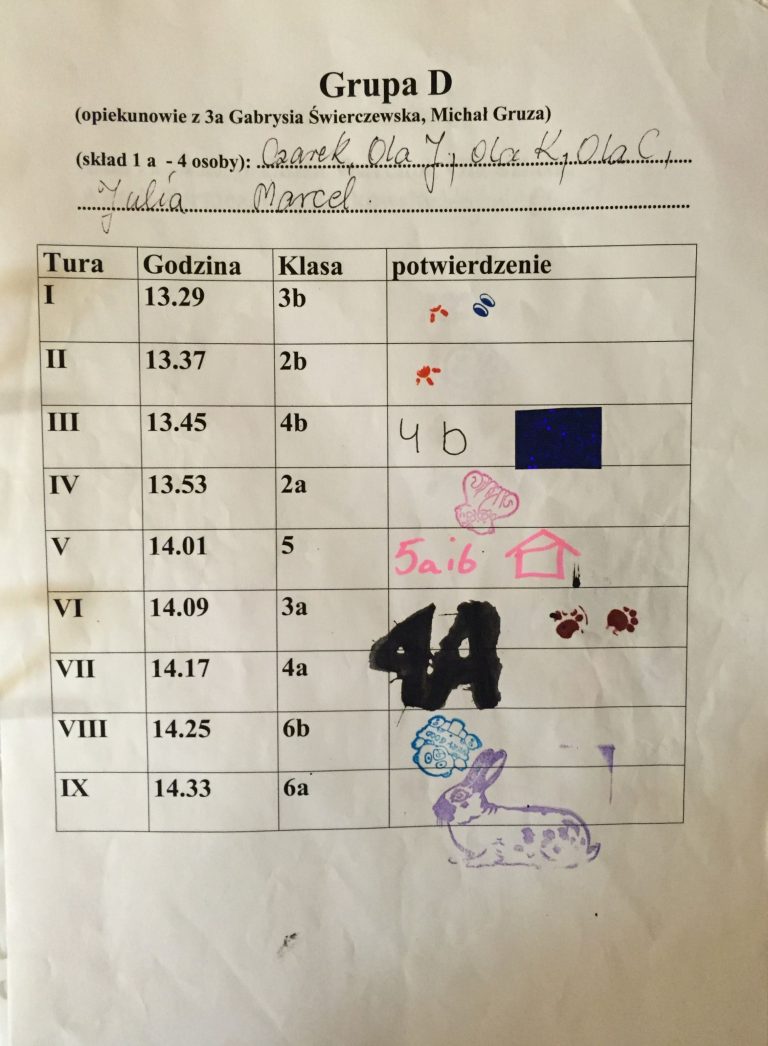 Grupa D
(opiekunowie z 3a Gabrysia Świerczewska, Michał Gruza)
(skład 1 a - 4 osoby): Czarek, Ola J, Ola K, Ola C,
Julia Marcel.
Tura Godzina Klasa potwierdzenie
I 13.29 3b
II 13.37 2b
III 13.45 4b 4b
IV 13.53 2a
V 14.01 5 5a i b
VI 14.09 3a
VII 14.17 4a 4A
VIII 14.25 6b
IX 14.33 6a